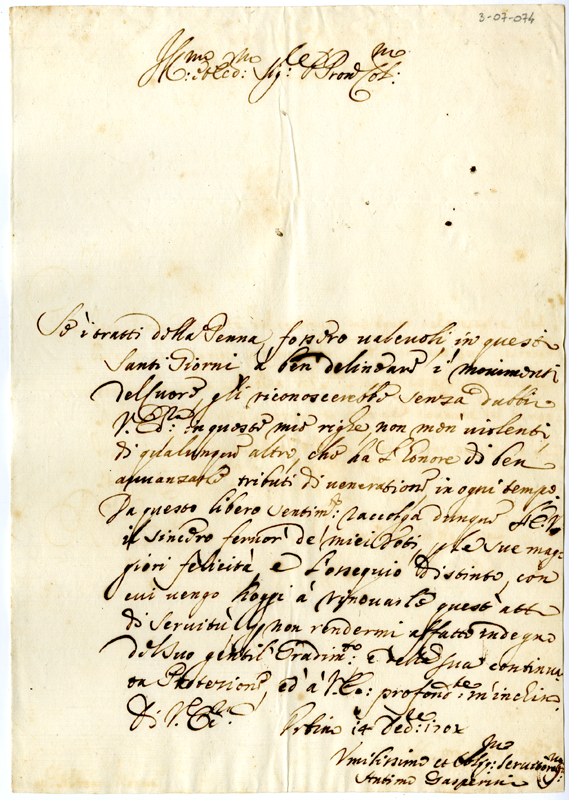 3-07-074
Ill.mo et Ecc.mo Sig.re Pron Col.mo
Se i tratti della Penna, fossero valevoli in questi
Santi Giorni à ben delineare i movimenti
del Cuore, gli riconoscerebbe senza dubbio
V. Ecc.za in queste mie righe non men violenti
di qualunque altro, che hà l'honore di ben
avvanzarle tributi di veneratione in ogni tempo.
Da questo libero sentim.to raccolga dunque l'E.V.
il sincero fervor de' miei Voti, p le sue mag-
giori felicità, e l'ossequio distinto, con
cui vengo hoggi à rinovarle quest' atto
di Servitù, p non rendermi affatto indegno
del suo gentil Gradim.to e della sua continua-
ta Protezione, ed à V. Ecc.za profond.te m'inchino.
Di V. Ecc.za
Urbino 14 Dec.bre
Umilissimo et Oblig.mo Servitore
Antimo Gasperini